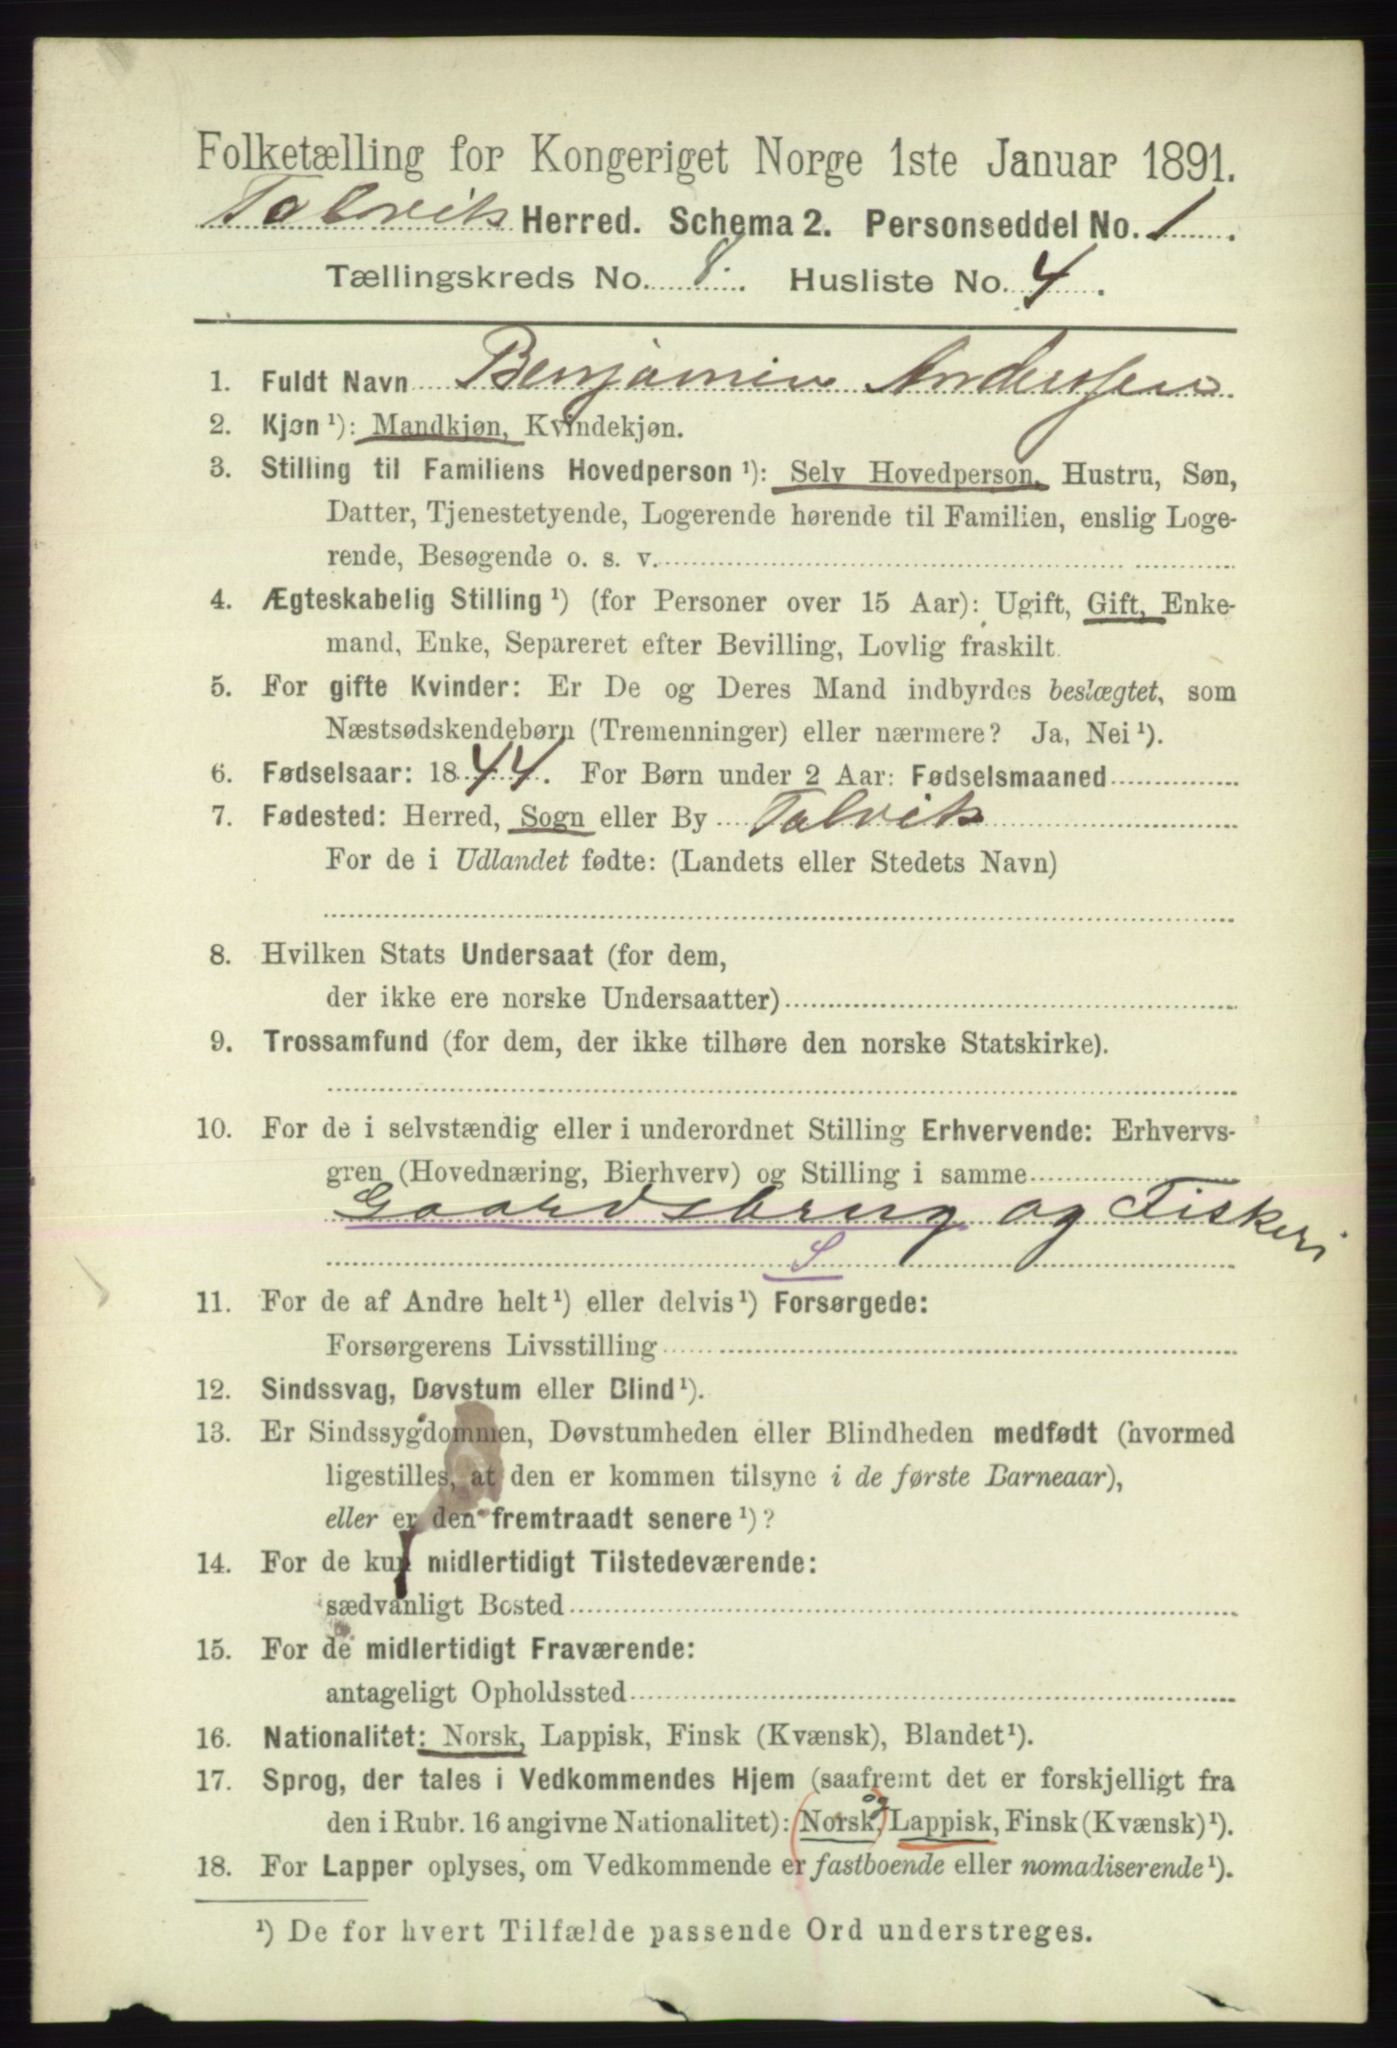 Folketælling for Kongeriget Norge 1ste Januar 1891.
Talvik Herred. Schema 2. Personseddel No. 1.
Tællingskreds No. 8. Husliste No. 4.
1. Fuldt Navn Benjamin Andersen.
2. Kjøn ¹): Mandkjøn, Kvindekjøn.
3. Stilling til Familiens Hovedperson ¹): Selv Hovedperson, Hustru, Søn,
Datter, Tjenestetyende, Logerende hørende til Familien, enslig Loge-
rende, Besøgende o. s. v.
4. Ægteskabelig Stilling ¹) (for Personer over 15 Aar): Ugift, Gift, Enke-
mand, Enke, Separeret efter Bevilling, Lovlig fraskilt.
5. For gifte Kvinder: Er De og Deres Mand indbyrdes beslægtet, som
Næstsødskendebørn (Tremenninger) eller nærmere? Ja, Nei ¹).
6. Fødselsaar: 1844. For Børn under 2 Aar: Fødselsmaaned
7. Fødested: Herred, Sogn eller By Talvik
For de i Udlandet fødte: (Landets eller Stedets Navn)
8. Hvilken Stats Undersaat (for dem,
der ikke ere norske Undersaatter)
9. Trossamfund (for dem, der ikke tilhøre den norske Statskirke).
10. For de i selvstændig eller i underordnet Stilling Erhvervende: Erhvervs-
gren (Hovednæring, Bierhverv) og Stilling i samme
Gaardsbrug og Fiskeri
S
11. For de af Andre helt ¹) eller delvis ¹) Forsørgede:
Forsørgerens Livsstilling
12. Sindssvag, Døvstum eller Blind ¹).
13. Er Sindssygdommen, Døvstumheden eller Blindheden medfødt (hvormed
ligestilles, at den er kommen tilsyne i de første Barneaar),
eller er den fremtraadt senere ¹)?
14. For de kun midlertidigt Tilstedeværende:
sædvanligt Bosted
15. For de midlertidigt Fraværende:
antageligt Opholdssted
16. Nationalitet: Norsk, Lappisk, Finsk (Kvænsk), Blandet ¹).
17. Sprog, der tales i Vedkommendes Hjem (saafremt det er forskjelligt fra
den i Rubr. 16 angivne Nationalitet): Norsk, og Lappisk, Finsk (Kvænsk) ¹).
18. For Lapper oplyses, om Vedkommende er fastboende eller nomadiserende ¹).
¹) De for hvert Tilfælde passende Ord understreges.